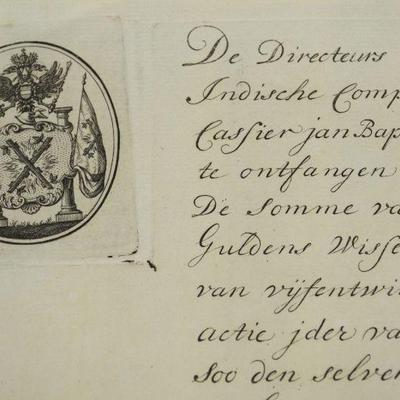 De Directeurs
Indische Comp
Cassier jan Bap
te ontfangen
De somme va
Guldens Wisse
van vijfentwi
actie jder va
soo den selven